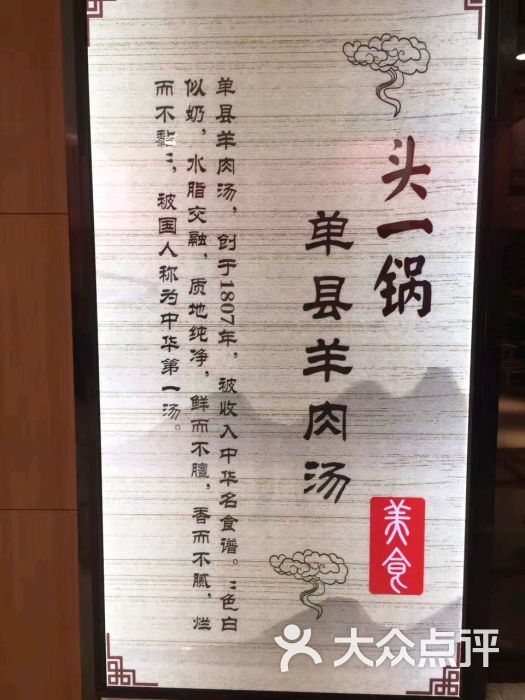 头一锅
单县羊肉汤
美食
单县羊肉汤，创于1807年，被收入中华名食谱。"色白
似奶，水脂交融，质地纯净，鲜而不膻，香而不腻，烂
而不黏"，被国人称为中华第一汤。
大众点评